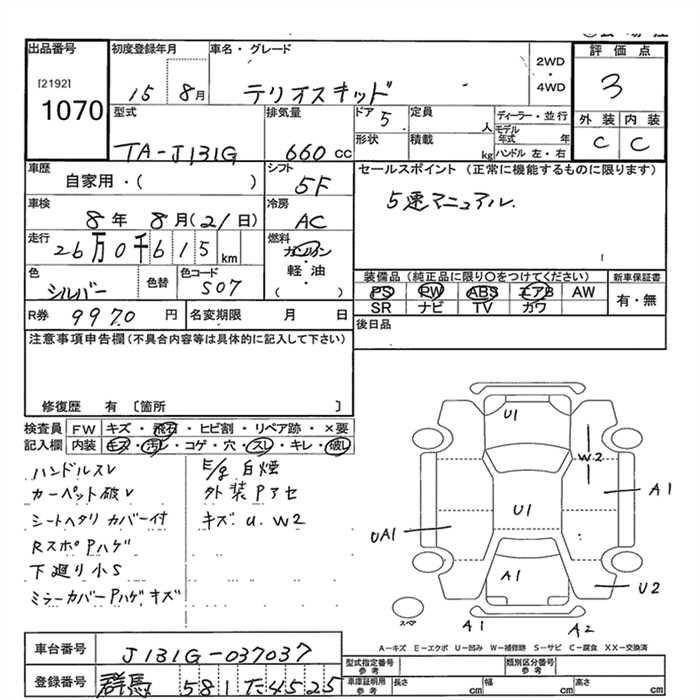 出品番号
[2192]
1070
初度登録年月
15 8月
車名・グレード
テリオスキッド
2WD
・
4WD
評価点
3
外装 内装
C C
型式
TA-J131G
排気量
660 cc
ドア 5
形状
定員
人
積載
kg
ディーラー・並行
モデル年式 年
ハンドル 左・右
車歴
自家用・( )
シフト
5F
セールスポイント (正常に機能するものに限ります)
5速マニュアル.
車検
8年 8月(21日)
冷房
AC
走行
26万0千615km
燃料
ガソリン
・
軽油
( )
色
シルバー
色替
色コード
S07
装備品(純正品に限り○をつけてください)
PS PW ABS エアB AW
SR ナビ TV ガワ
新車保証書
有・無
R券 9970 円
名変期限 月 日
後日品
注意事項申告欄(不具合内容等は具体的に記入して下さい)
修復歴 有 〔箇所 〕
検査員記入欄
FW キズ・飛石・ヒビ割・リペア跡・×要
内装 キズ・汚レ・コゲ・穴・スレ・キレ・破レ
ハンドルスレ
カーペット破レ
シートヘタリ カバー付
RスポPハゲ
下廻り小S
ミラーカバーPハゲキズ
E/g 白煙
外装Pアセ
キズ. U. W2
U1
W2
A1
U1
UA1
A1
U2
スペア
A1
A2
A-キズ E-エクボ U-凹み W-補修跡 S-サビ C-腐食 XX-交換済
車台番号
J131G-037037
登録番号
群馬 581 た 4525
型式指定番号
参考
類別区分番号
参考
車庫証明用
参考
長さ cm
幅 cm
高さ cm